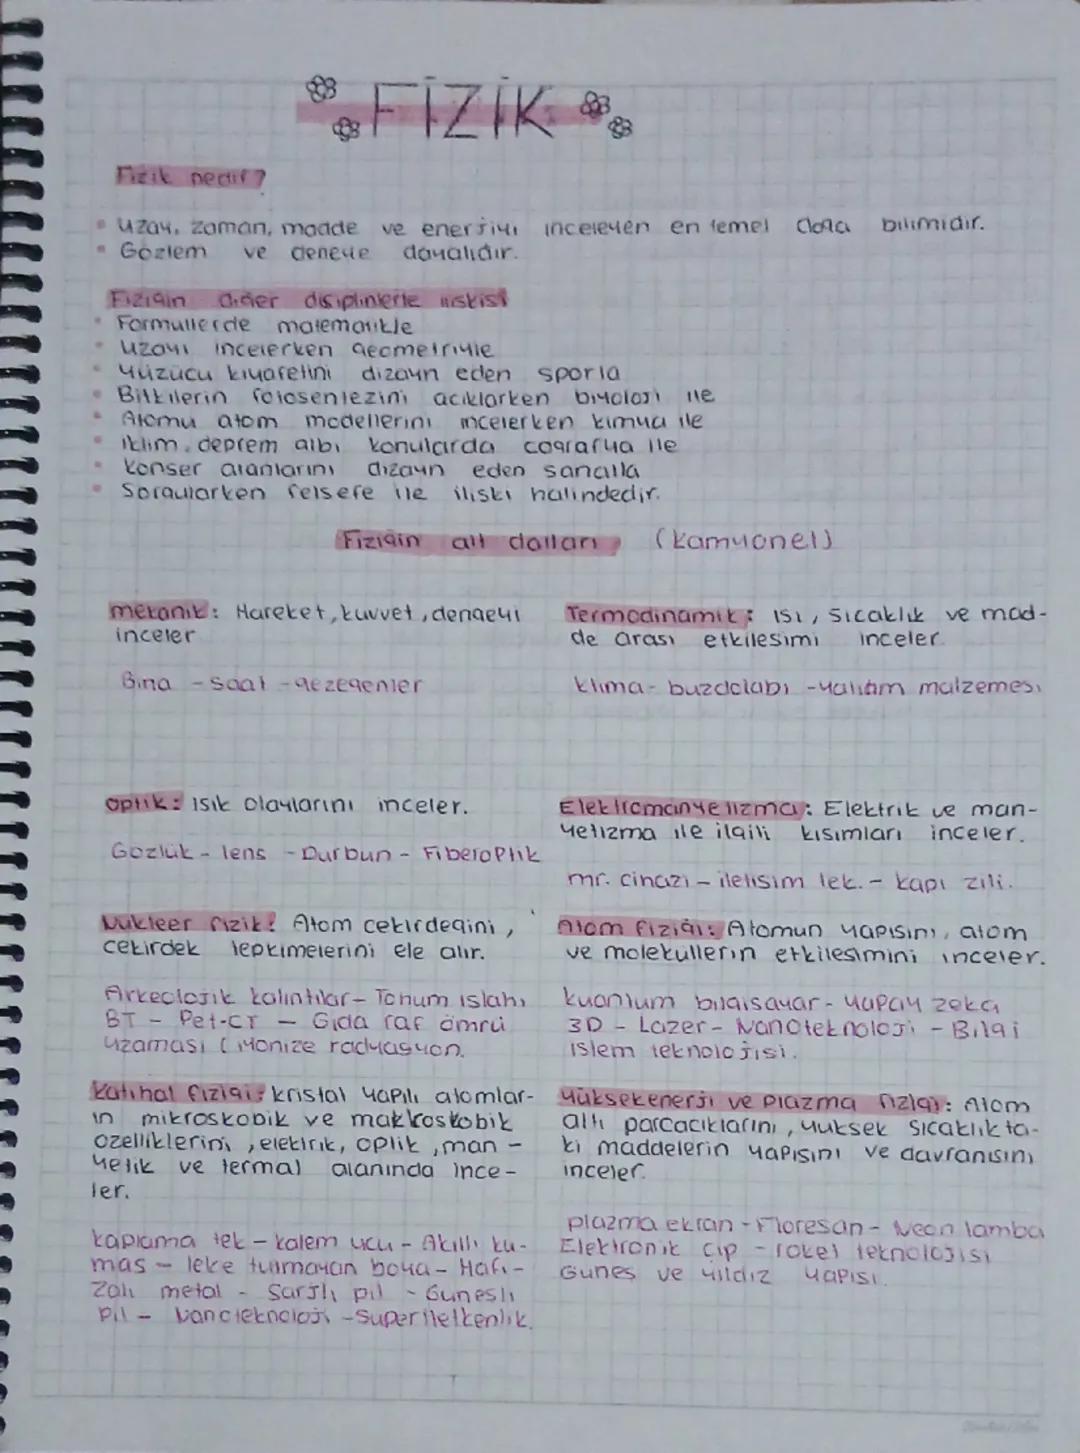 FİZİK
Fizik nedir?
• Uzay, zaman, madde ve enerjiyi inceleyen en temel doğa bilimidir.
• Gözlem ve deneye dayalıdır.
Fiziğin diğer disiplinlerle ilişkisi
• Formüllerde matematikle
• Uzayı incelerken geometriyle
• Yüzücü kıyafetini dizayn eden sporla
• Bitkilerin fotosentezini açıklarken biyoloji ile
• Atomu atom modellerini incelerken kimya ile
• İklim, deprem gibi konularda coğrafya ile
• Konser alanlarını dizayn eden sanatla
• Sorgularken felsefe ile ilişki halindedir.
Fiziğin alt dalları (kamyonet)
mekanik: Hareket, kuvvet, dengeyi
inceler
Bina - saat - gezegenler
Termodinamik: ısı, sıcaklık ve mad-
de arası etkileşimi inceler.
klima - buzdolabı - yalıtım malzemesi
Optik: Işık olaylarını inceler.
Gözlük - lens - Dürbün - Fiberoptik
Elektromanyetizma: Elektrik ve man-
yetizma ile ilgili kısımları inceler.
mr. cihazı - iletişim tek. - kapı zili.
Nükleer fizik: Atom çekirdeğini,
çekirdek tepkimelerini ele alır.
Arkeolojik kalıntılar - Tohum ıslahı
BT - Pet-CT - Gıda raf ömrü
uzaması (iyonize radyasyon.
Atom fiziği: Atomun yapısını, atom
ve moleküllerin etkileşimini inceler.
kuantum bilgisayar - yapay zeka
3D - Lazer - Nanoteknoloji - Bilgi
işlem teknolojisi.
Katıhal fiziği: kristal yapılı atomlar-
ın mikroskobik ve makroskobik
özelliklerini, elektrik, optik, man-
yetik ve termal alanında ince-
ler.
kaplama tek - kalem ucu - Akıllı ku-
maş - leke tutmayan boya - Hafı-
zalı metal - Şarjlı pil - Güneşli
pil - Nanoteknoloji - Süper iletkenlik.
Yüksek enerji ve plazma fiziği: Atom
altı parçacıklarını, yüksek sıcaklıkta-
ki maddelerin yapısını ve davranışını
inceler.
plazma ekran - Floresan - Neon lamba
Elektronik çip - roket teknolojisi
Güneş ve yıldız yapısı.